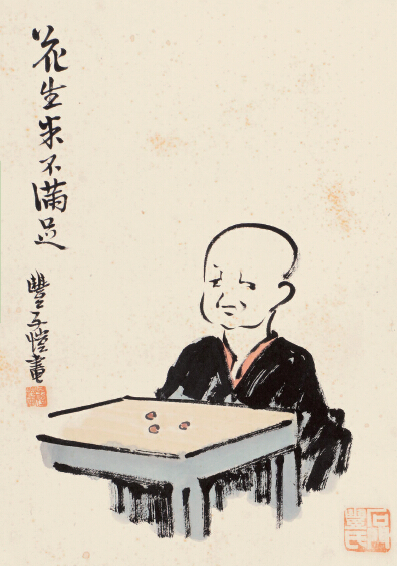 花生米不满足
豐子愷畫